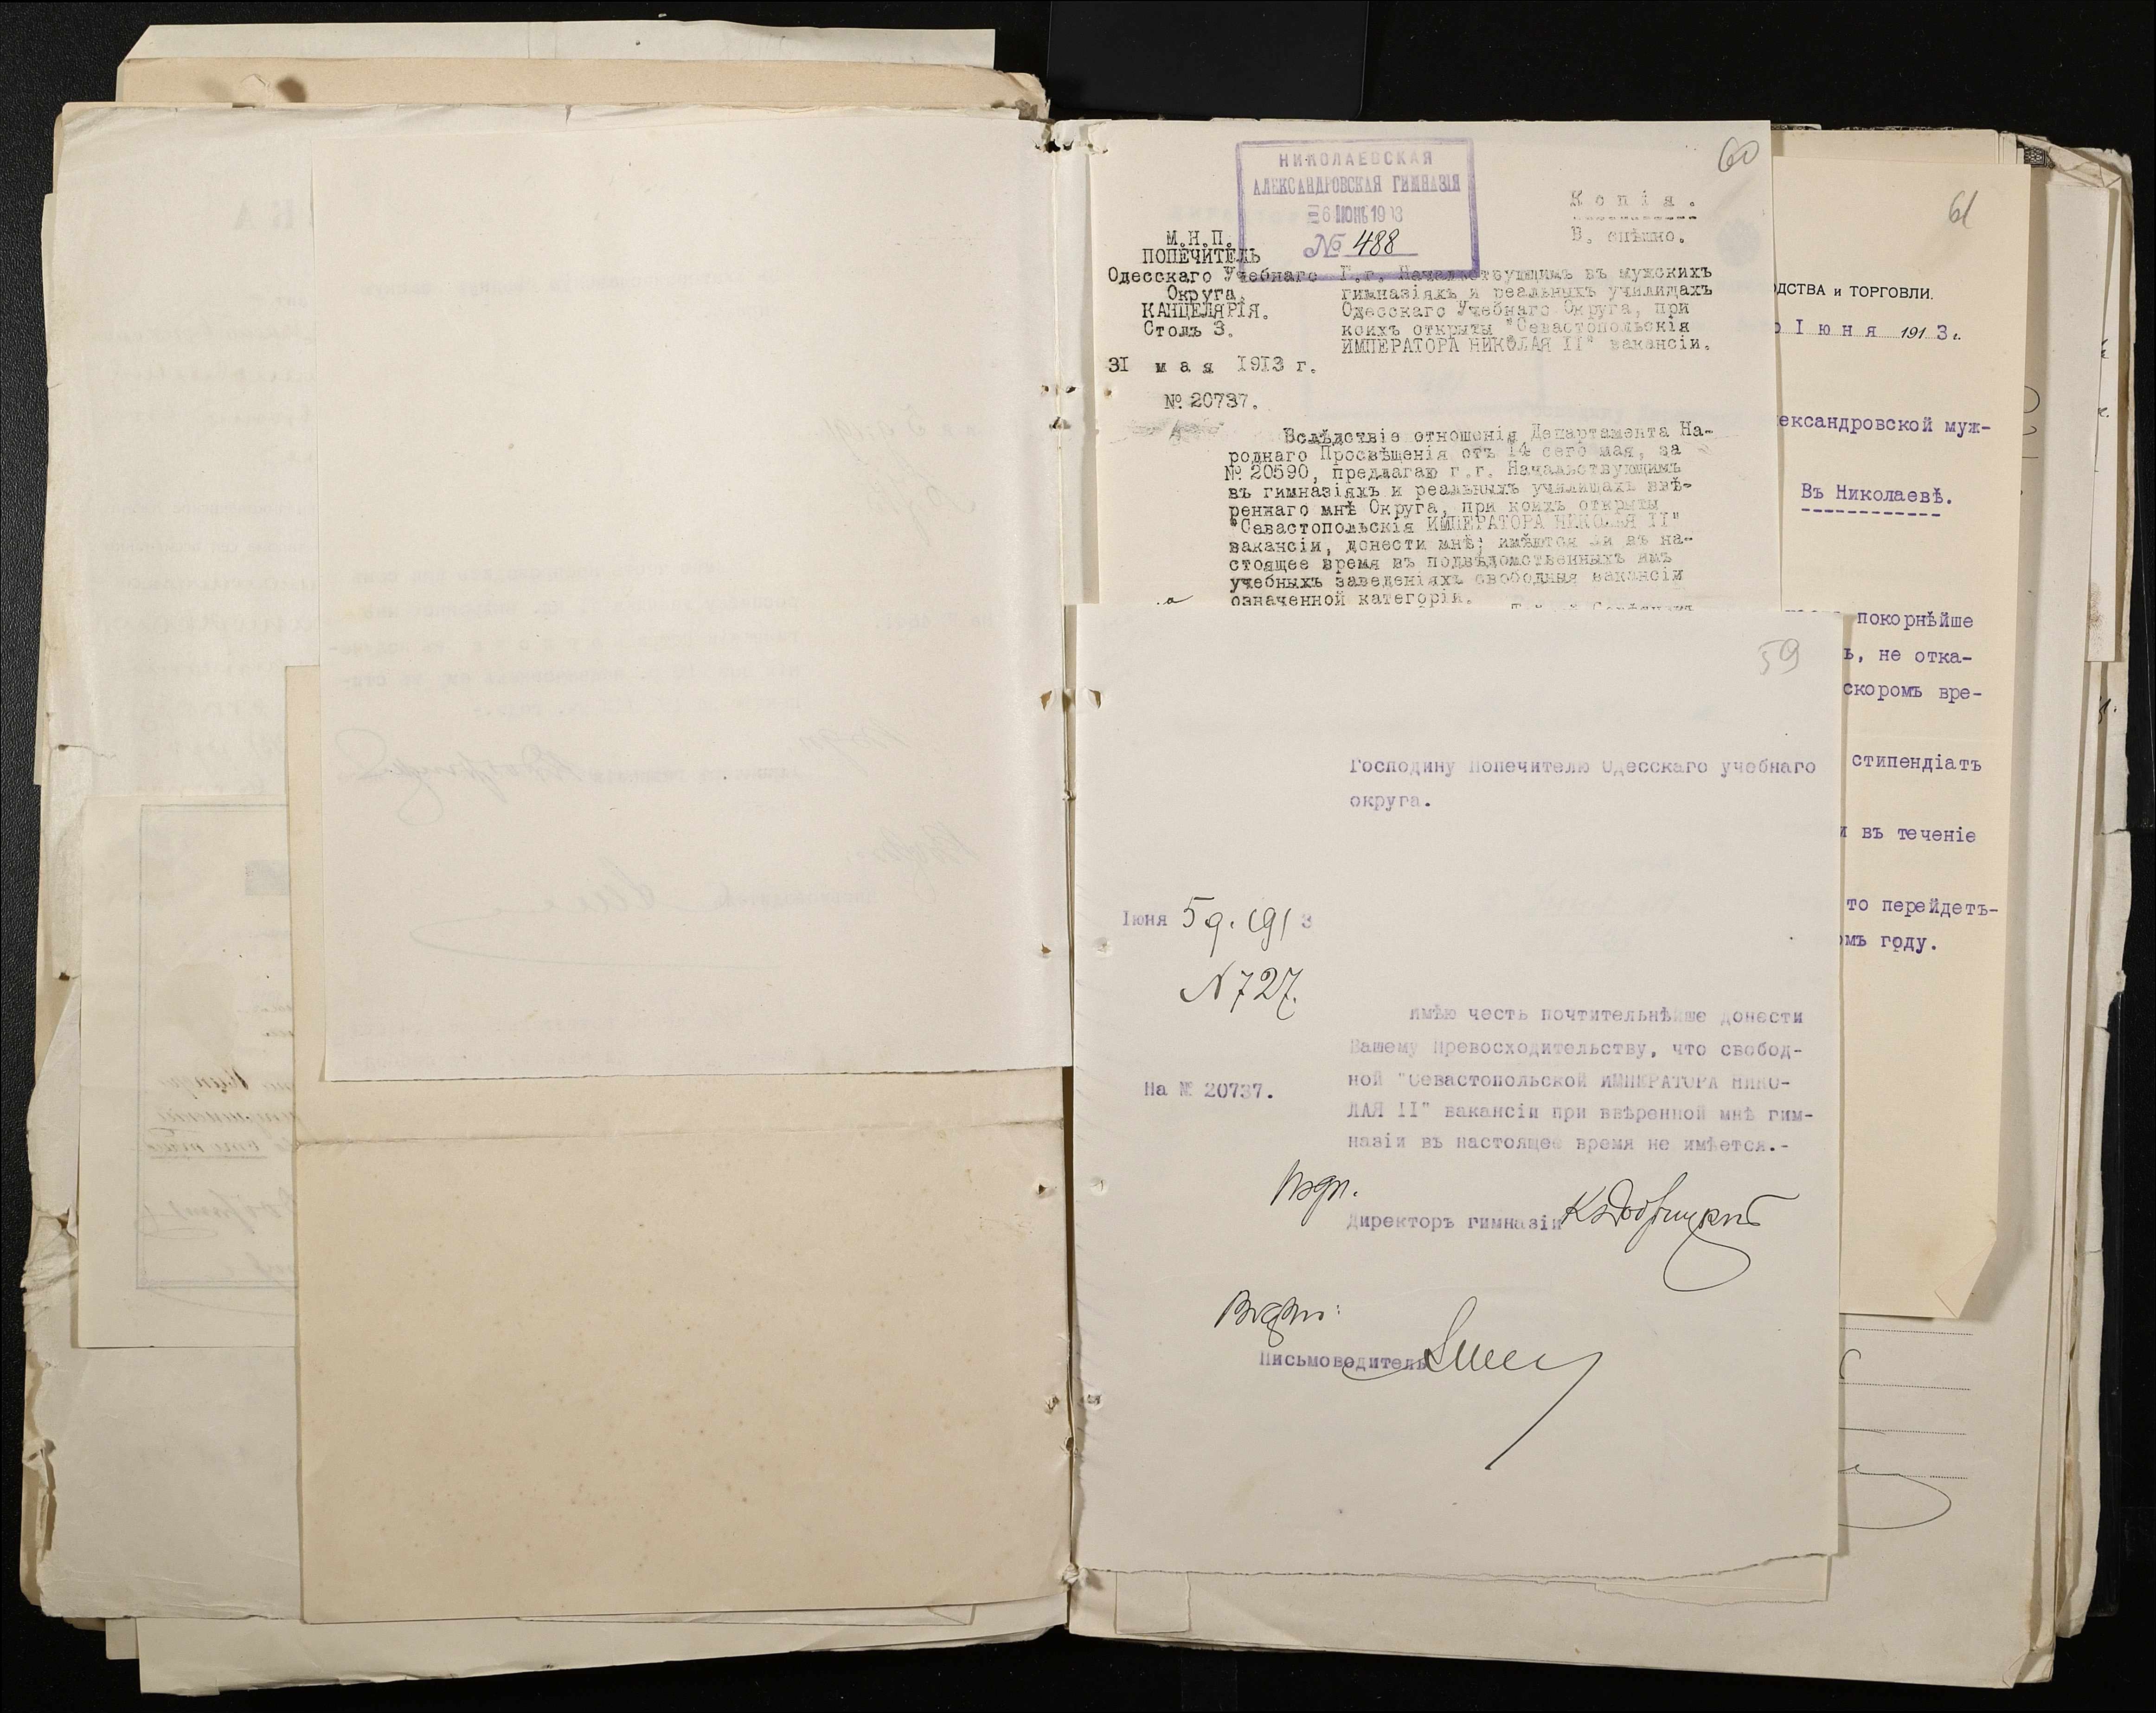 60
НИКОЛАЕВСКАЯ
АЛЕКСАНДРОВСКАЯ ГИМНАЗІЯ
6 ІЮН 1913
№ 488
Копія.
В. спѣшно.
М.Н.П.
ПОПЕЧИТЕЛЬ
Одесскаго Учебнаго
Округа.
КАНЦЕЛЯРІЯ.
Столъ 3.
31 мая 1913 г.
№ 20737.
Г.г. Начальствующимъ въ мужскихъ
гимназіяхъ и реальныхъ училищахъ
Одесскаго Учебнаго Округа, при
коихъ открыты "Севастопольскія
ИМПЕРАТОРА НИКОЛАЯ II" вакансіи.
Вслѣдствіе отношенія Департамента На-
роднаго Просвѣщенія отъ 14 сего мая, за
№ 20590, предлагаю г.г. Начальствующимъ
въ гимназіяхъ и реальныхъ училищахъ ввѣ-
реннаго мнѣ Округа, при коихъ открыты
"Севастопольскія ИМПЕРАТОРА НИКОЛАЯ II"
вакансіи, донести мнѣ; имѣются ли въ на-
стоящее время въ подвѣдомственныхъ имъ
учебныхъ заведеніяхъ свободныя вакансіи
означенной категоріи.
59
Господину Попечителю Одесскаго учебнаго
округа.
Іюня 5 д. 1913
N 727.
На № 20737.
Имѣю честь почтительнѣйше донести
Вашему Превосходительству, что свобод-
ной "Севастопольской ИМПЕРАТОРА НИКО-
ЛАЯ II" вакансіи при ввѣренной мнѣ гим-
назіи въ настоящее время не имѣется.-
Директоръ гимназіи
Письмоводитель
61
ОДСТВА и ТОРГОВЛИ.
Іюня 1913 г.
ександровской муж-
Въ Николаевѣ.
покорнѣйше
ъ, не отка-
скоромъ вре-
стипендіатъ
и въ теченіе
то перейдетъ-
омъ году.